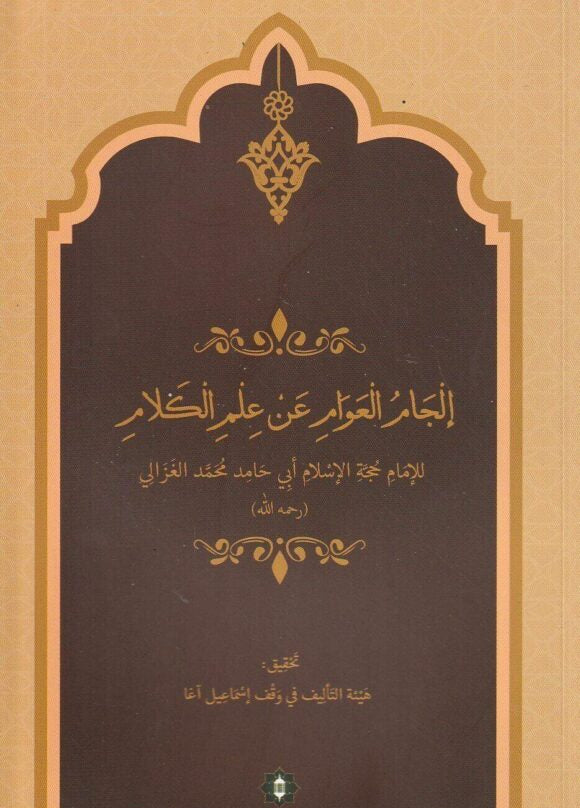 إِلْجَامُ الْعَوَامِ عَنْ عِلْمِ الْكَلَامِ
للإِمَامِ حُجَّةِ الإِسْلَامِ أَبِي حَامِد مُحَمَّد الغَزَالي
(رحمه الله)
تَحْقِيق:
هَيْئَة التَأْلِيف فِي وَقْف إِسْمَاعِيل آغا